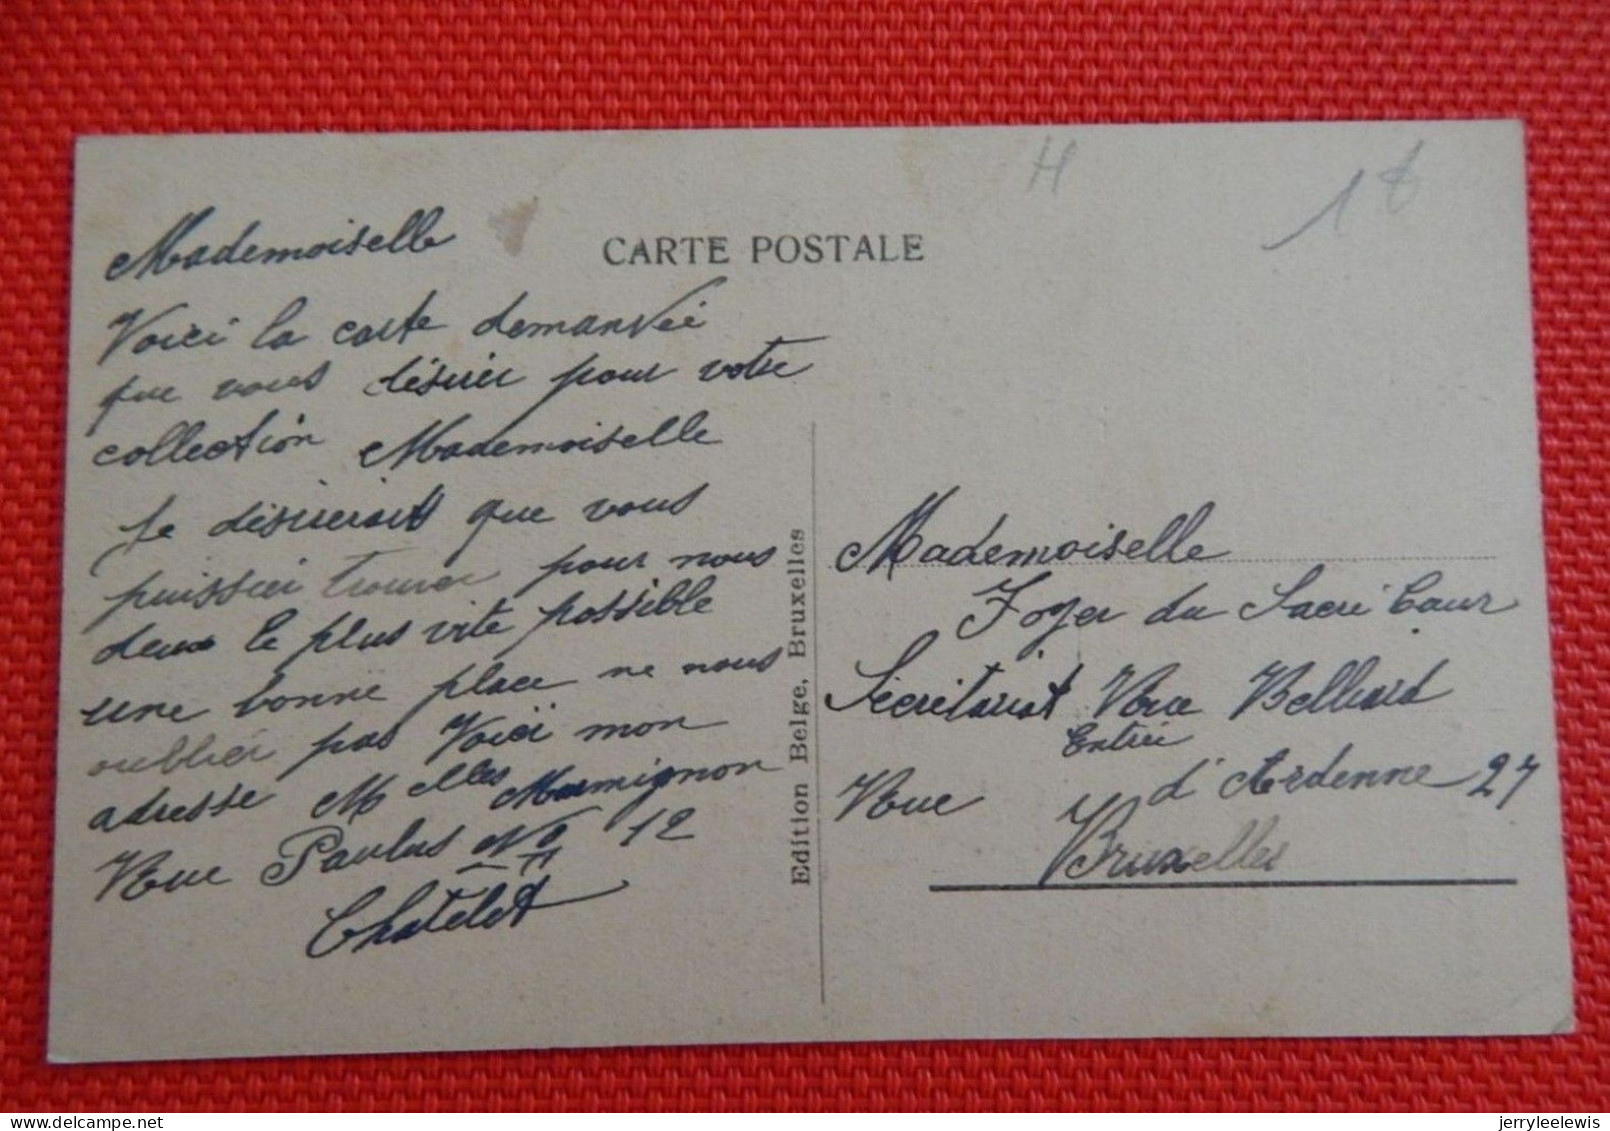 H
18
CARTE POSTALE
Mademoiselle
Voici la carte demandée
que vous désirér pour votre
collection Mademoiselle
Je désirerait que vous
puissiér trouver pour nous
deux le plus vite possible
une bonne place ne nous
oubliér pas Voici mon
adresse Melles Marmignon
Rue Paulus No 12
Chatelet
Edition Belge, Bruxelles
Mademoiselle
Foyer du Sacré Cœur
Sécrétariat Rue Belliard
Entrée
Rue d'Ardenne 27
Bruxelles
jerryleelewis